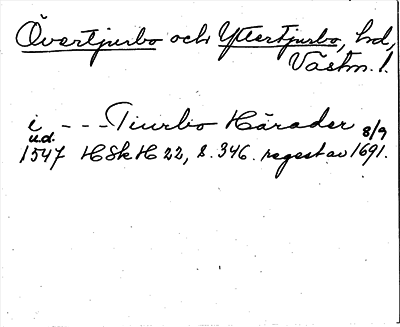 Övertjurbo och Yttertjurbo, hd,
Västm. l.
i - - - Tiurbo Härader 8/9
u.d.
1547 HSkH 22, s. 346. regest av 1691.